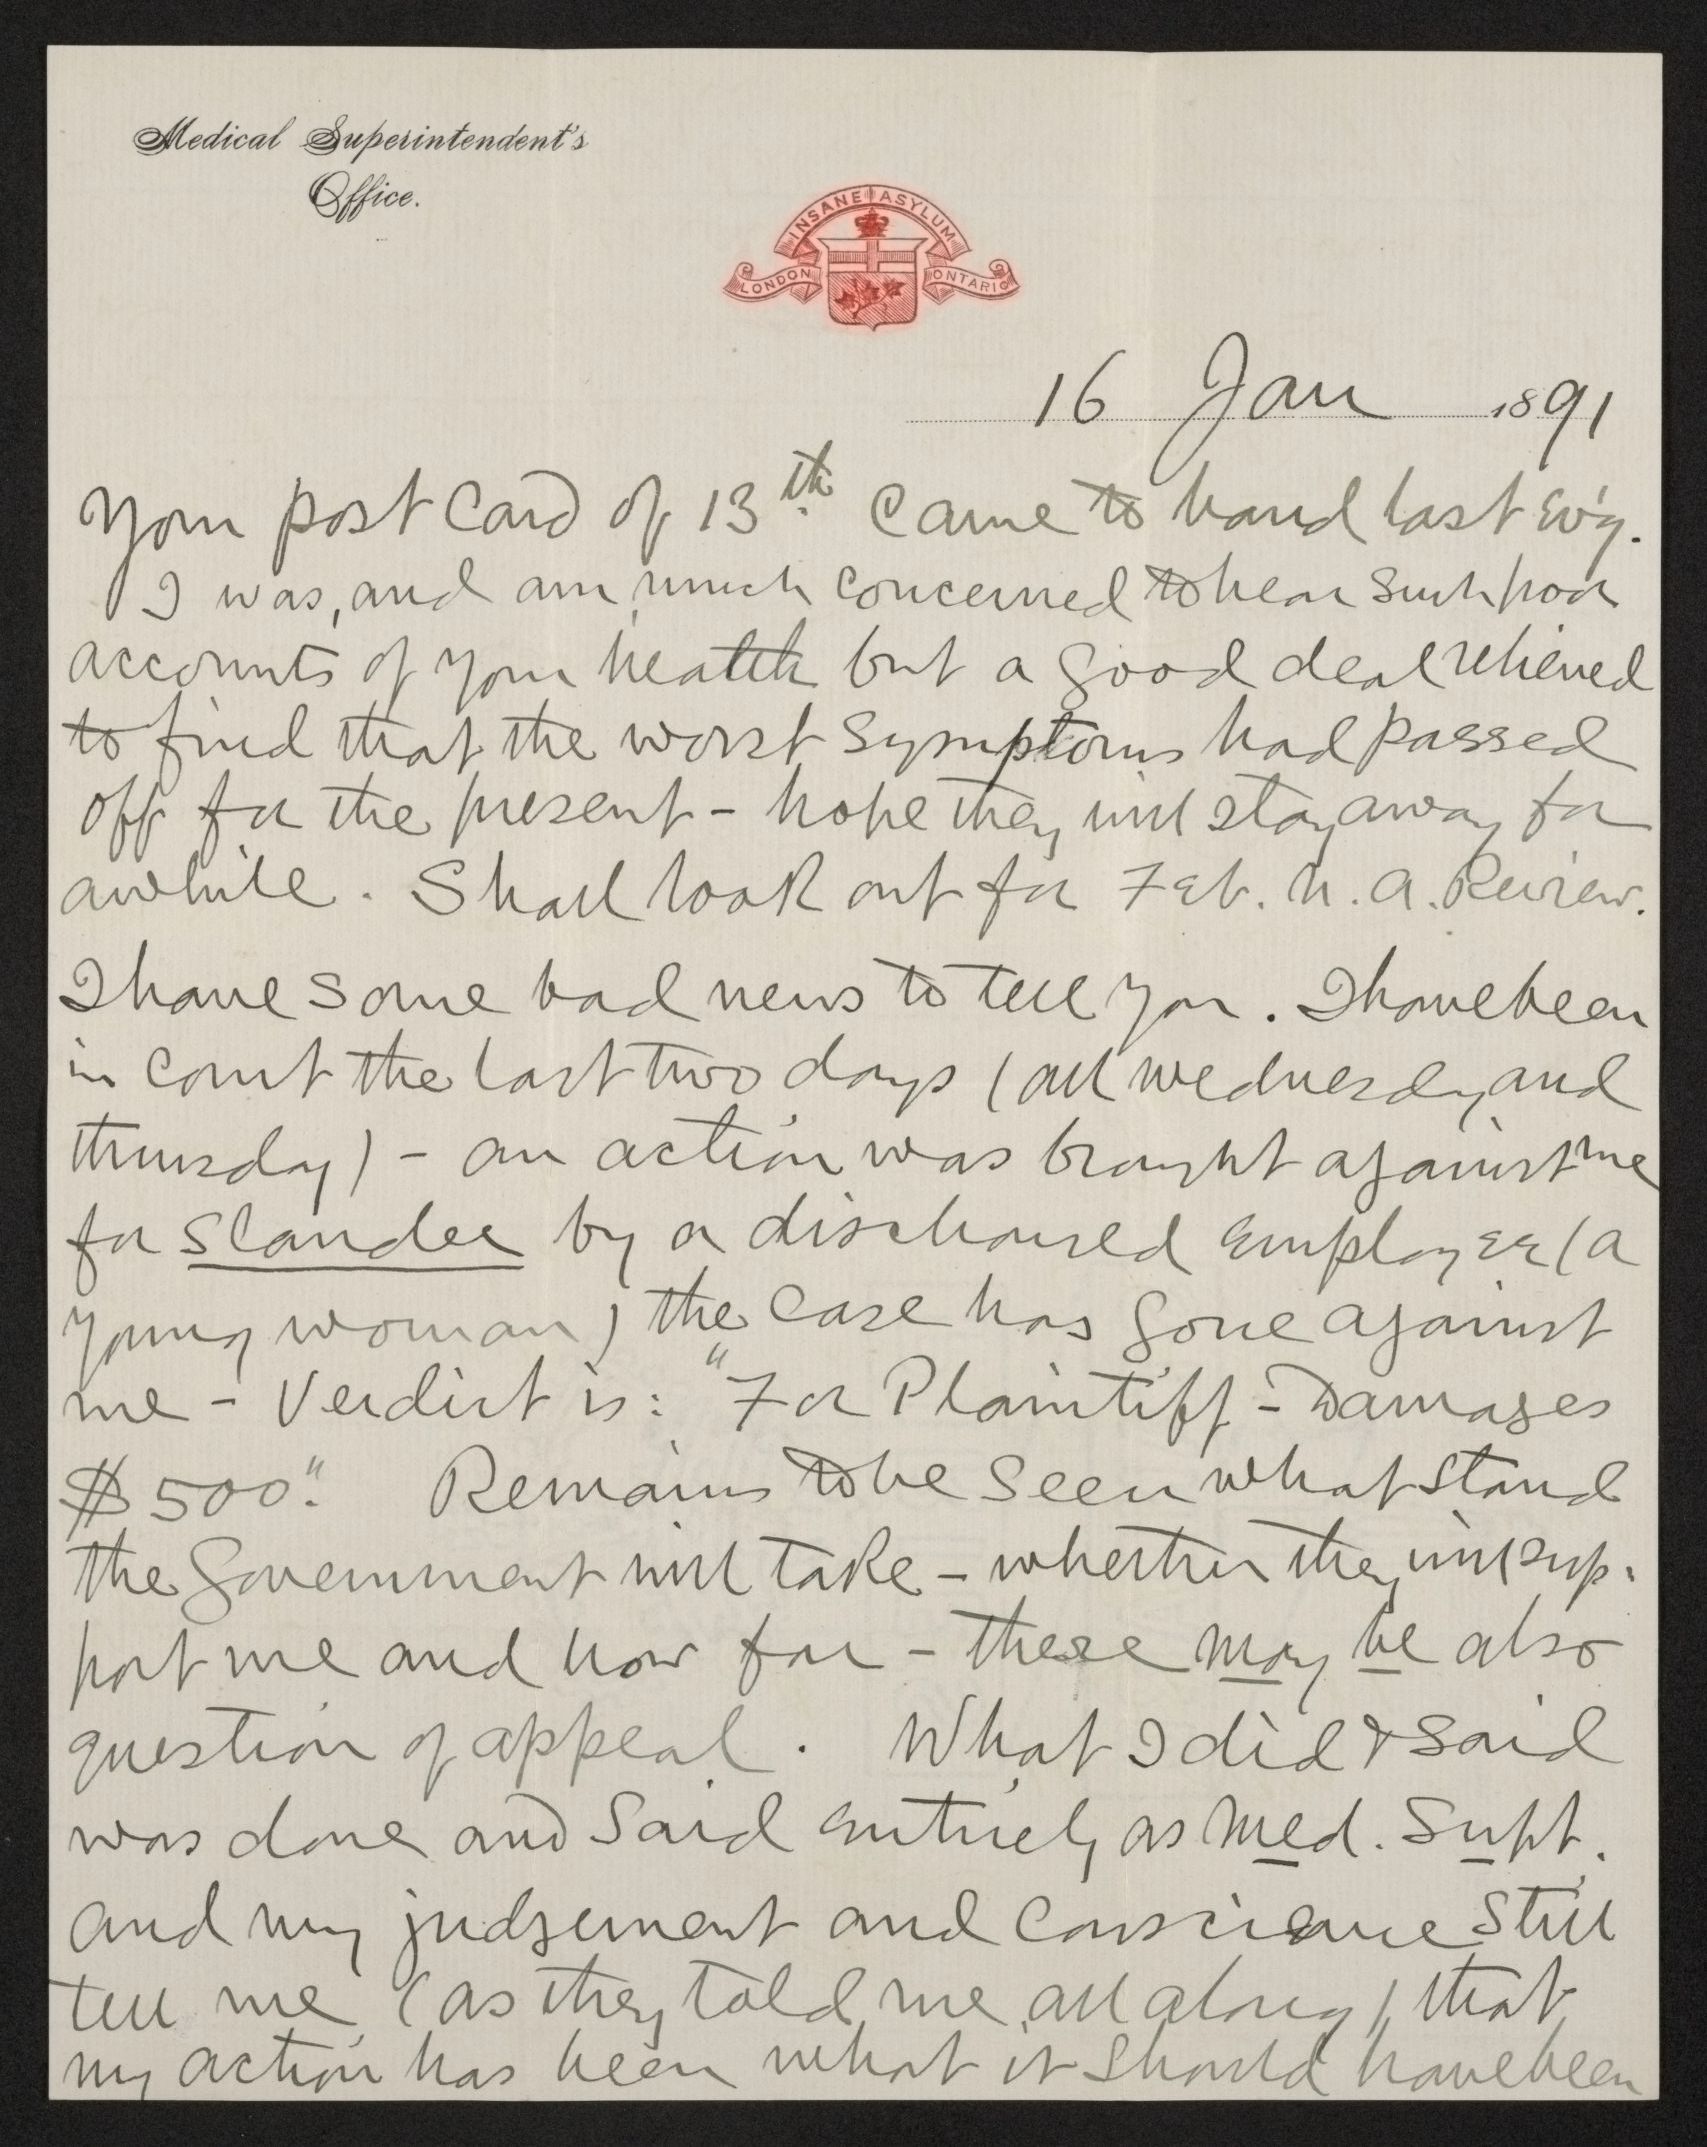 Medical Superintendent's
Office.
INSANE ASYLUM
LONDON ONTARIO
16 Jan 1891
Your post card of 13th. came to hand last ev'g.
I was, and am, much concerned to hear such poor
accounts of your health but a good deal relieved
to find that the worst symptoms had passed
off for the present - hope they will stay away for
awhile. Shall look out for Feb. N. A. Review.
I have some bad news to tell you. I have been
in court the last two days (all wednesday and
thursday) - an action was brought against me
for slander by a discharged employee (a
young woman) the case has gone against
me - Verdict is: "For Plaintiff - Damages
$500". Remains to be seen what stand
the Government will take - whether they will sup-
port me and how far - there may be also
question of appeal. What I did & said
was done and said entirely as Med. Supt.
and my judgement and conscience still
tell me (as they told me all along) that
my action has been what it should have been